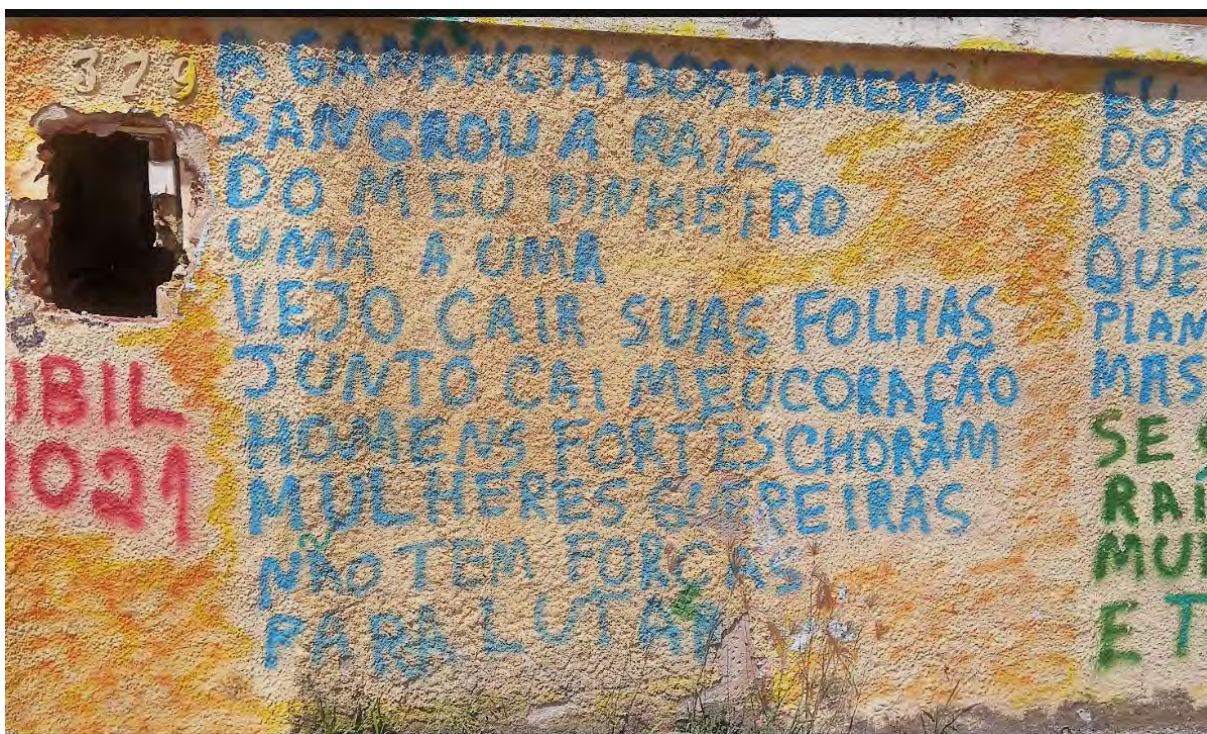 379
A GANANCIA DOS HOMENS
SANGROU A RAIZ
DO MEU PINHEIRO
UMA A UMA
VEJO CAIR SUAS FOLHAS
JUNTO CAI MEU CORAÇÃO
HOMENS FORTES CHORAM
MULHERES GUEREIRAS
NÃO TEM FORÇAS
PARA LUTAR
UBIL
2021
EU
DOR
DISS
QUE
PLAN
MAS
SE
RAI
MUD
E T